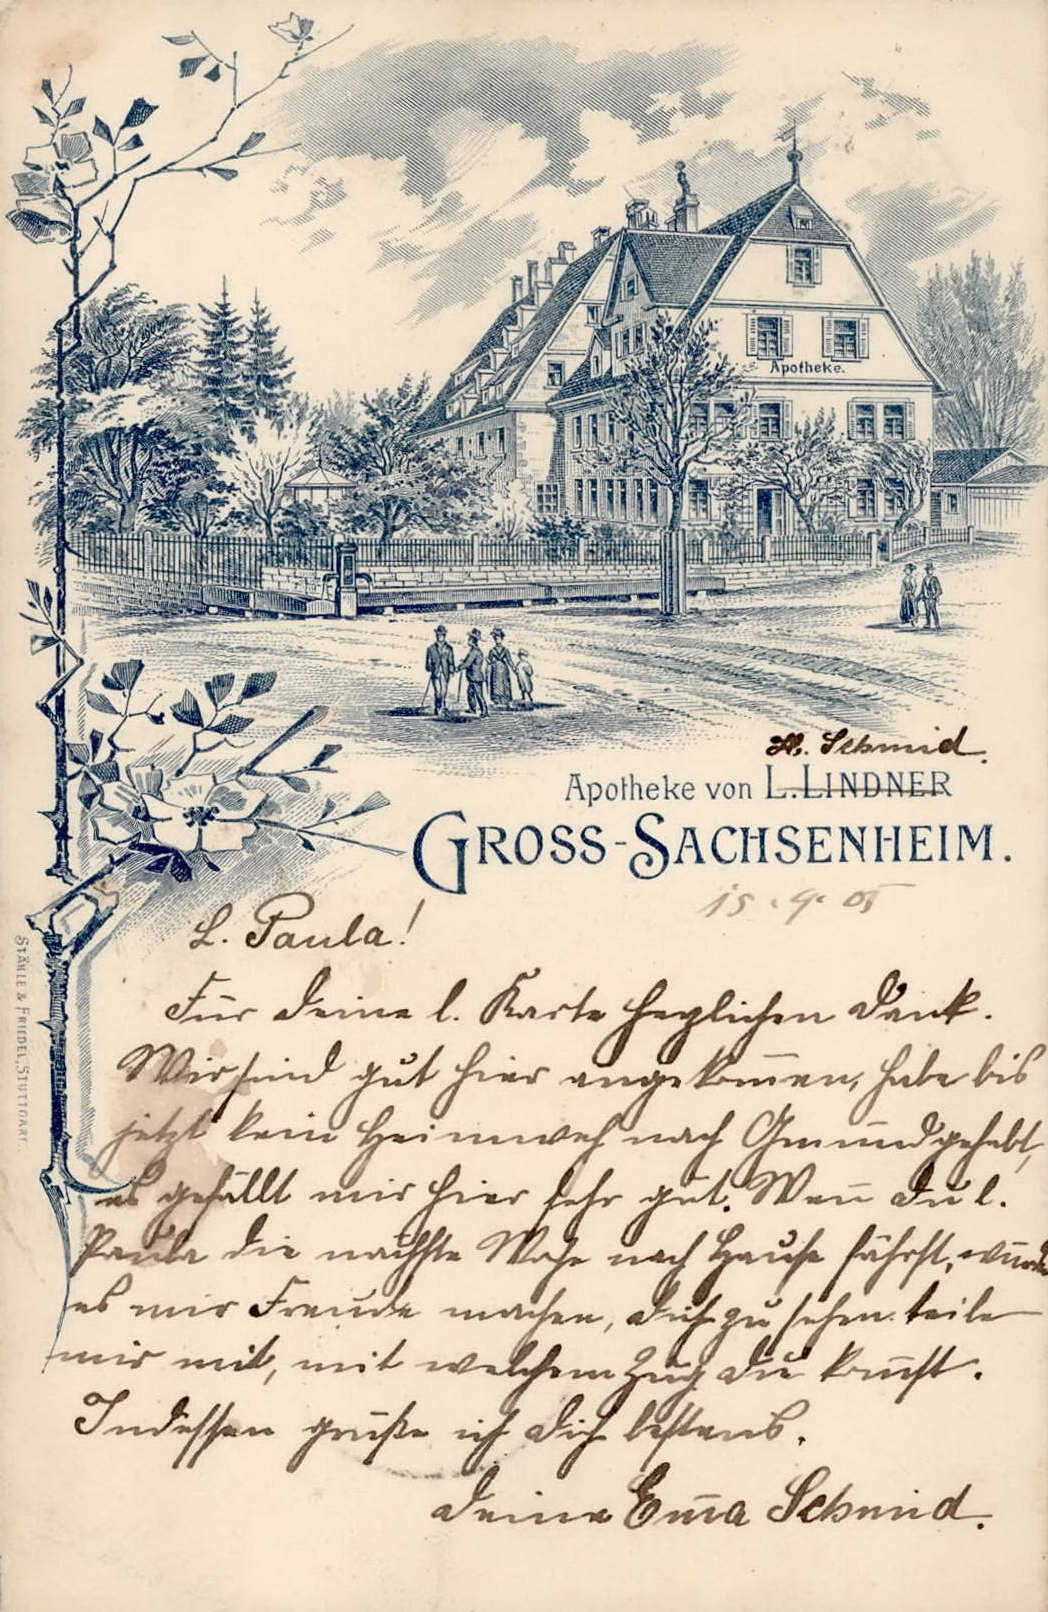 Apotheke.
H. Schmid.
Apotheke von L. LINDNER
GROSS-SACHSENHEIM.
15.9.05
L. Paula!
Für deine l. Karte herzlichen Dank.
Wir sind gut hier angekom̅en, habe bis
jetzt kein Heimweh nach Gmünd gehabt,
es gefällt mir hier sehr gut. Wen̅ du l.
Paula die nächste Woche nach Hause fährst, würde
es mir Freude machen, dich zu sehen. teile
mir mit, mit welchem Zug du kom̅st.
Indessen grüße ich dich bestens.
Deine Em̅a Schmid.
STÄHLE & FRIEDEL, STUTTGART.